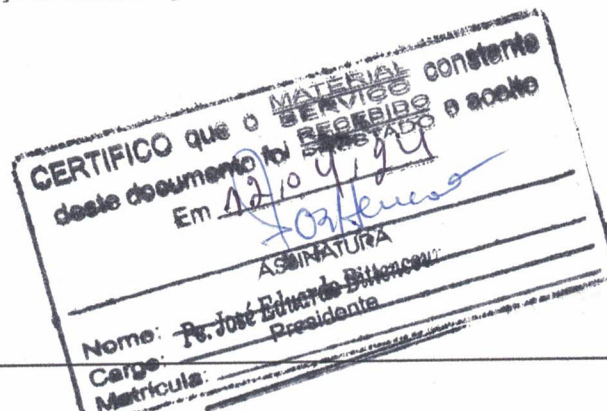 CERTIFICO que o MATERIAL SERVICO constante
deste documento foi RECEBIDO PRESTADO e aceito
Em 12,04,24
ASSINATURA
Nome: Pe. José Eduardo Bittencour
Cargo: Presidente
Matrícula: